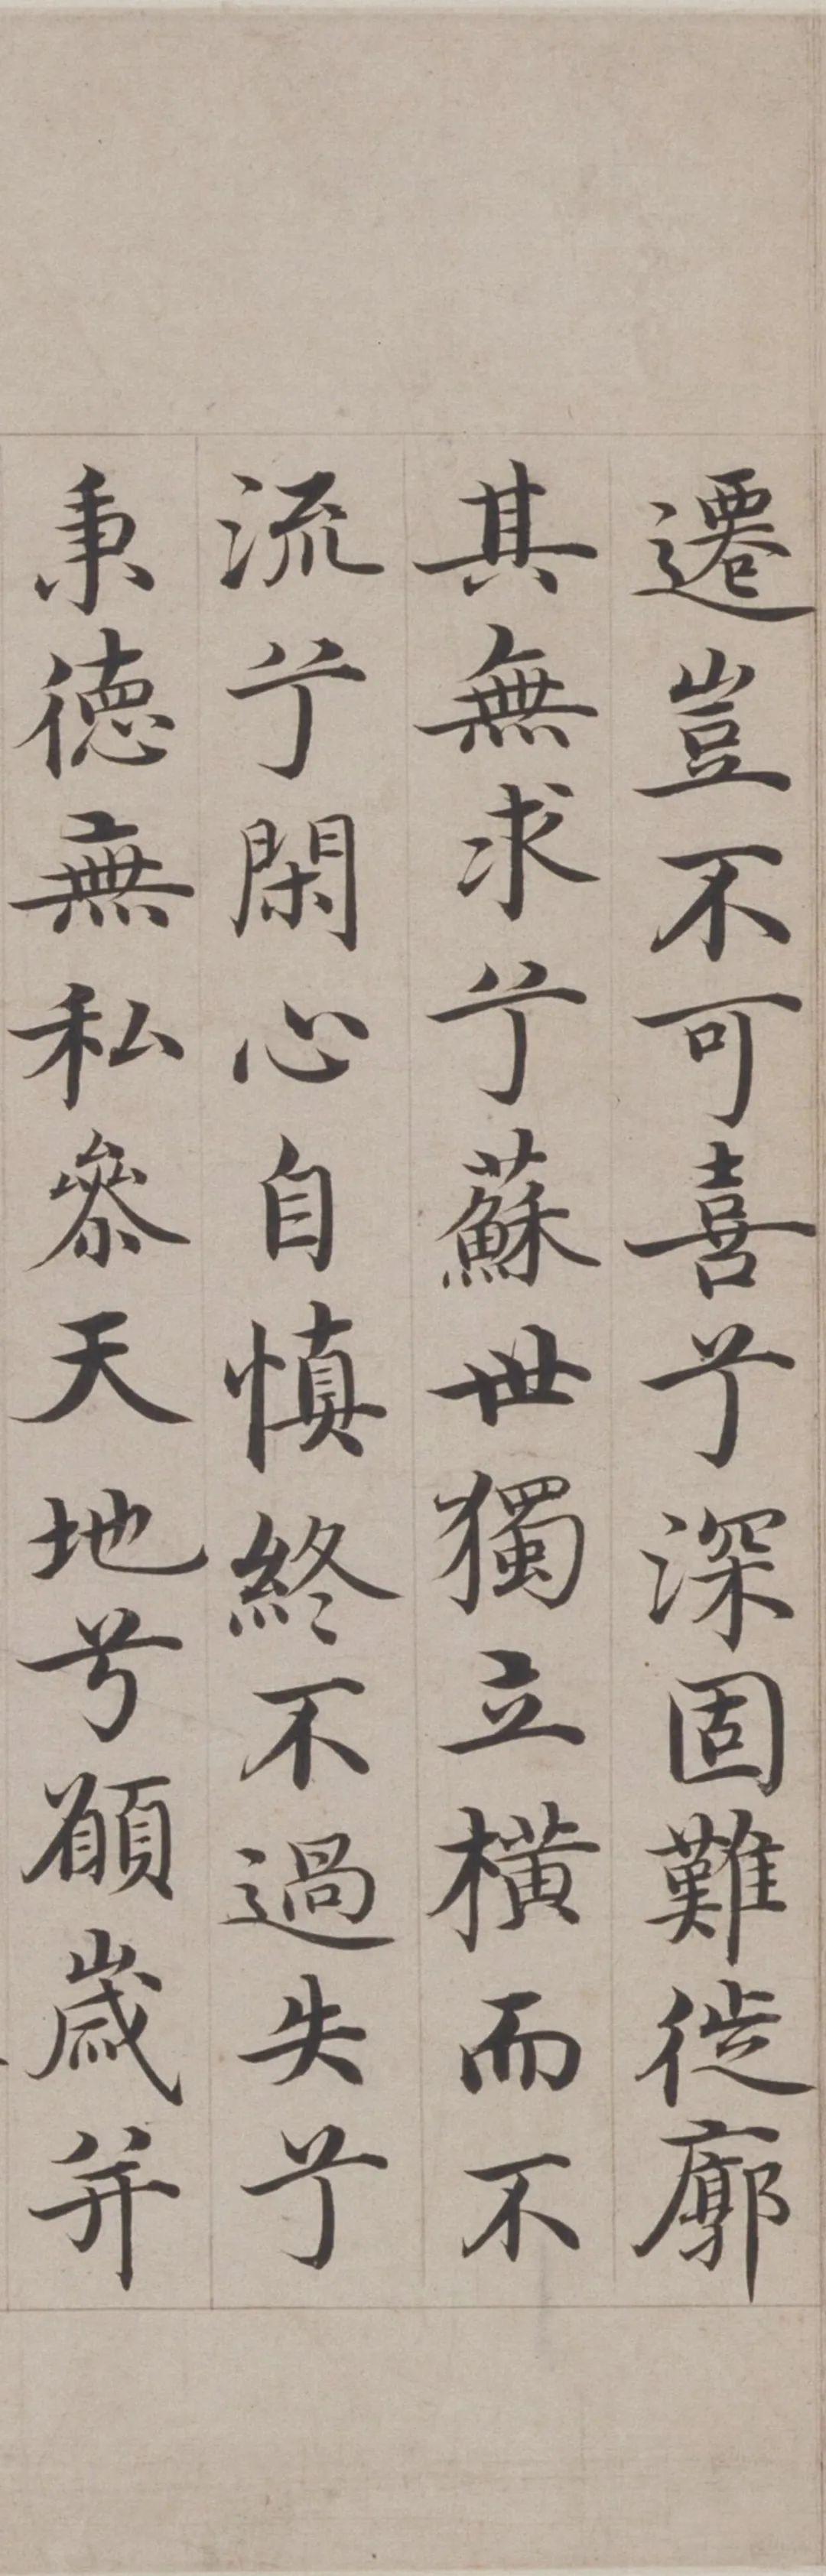 遷豈不可喜兮深固難徙廓
其無求兮蘇世獨立橫而不
流兮閑心自慎終不過失兮
秉德無私參天地兮願歲并